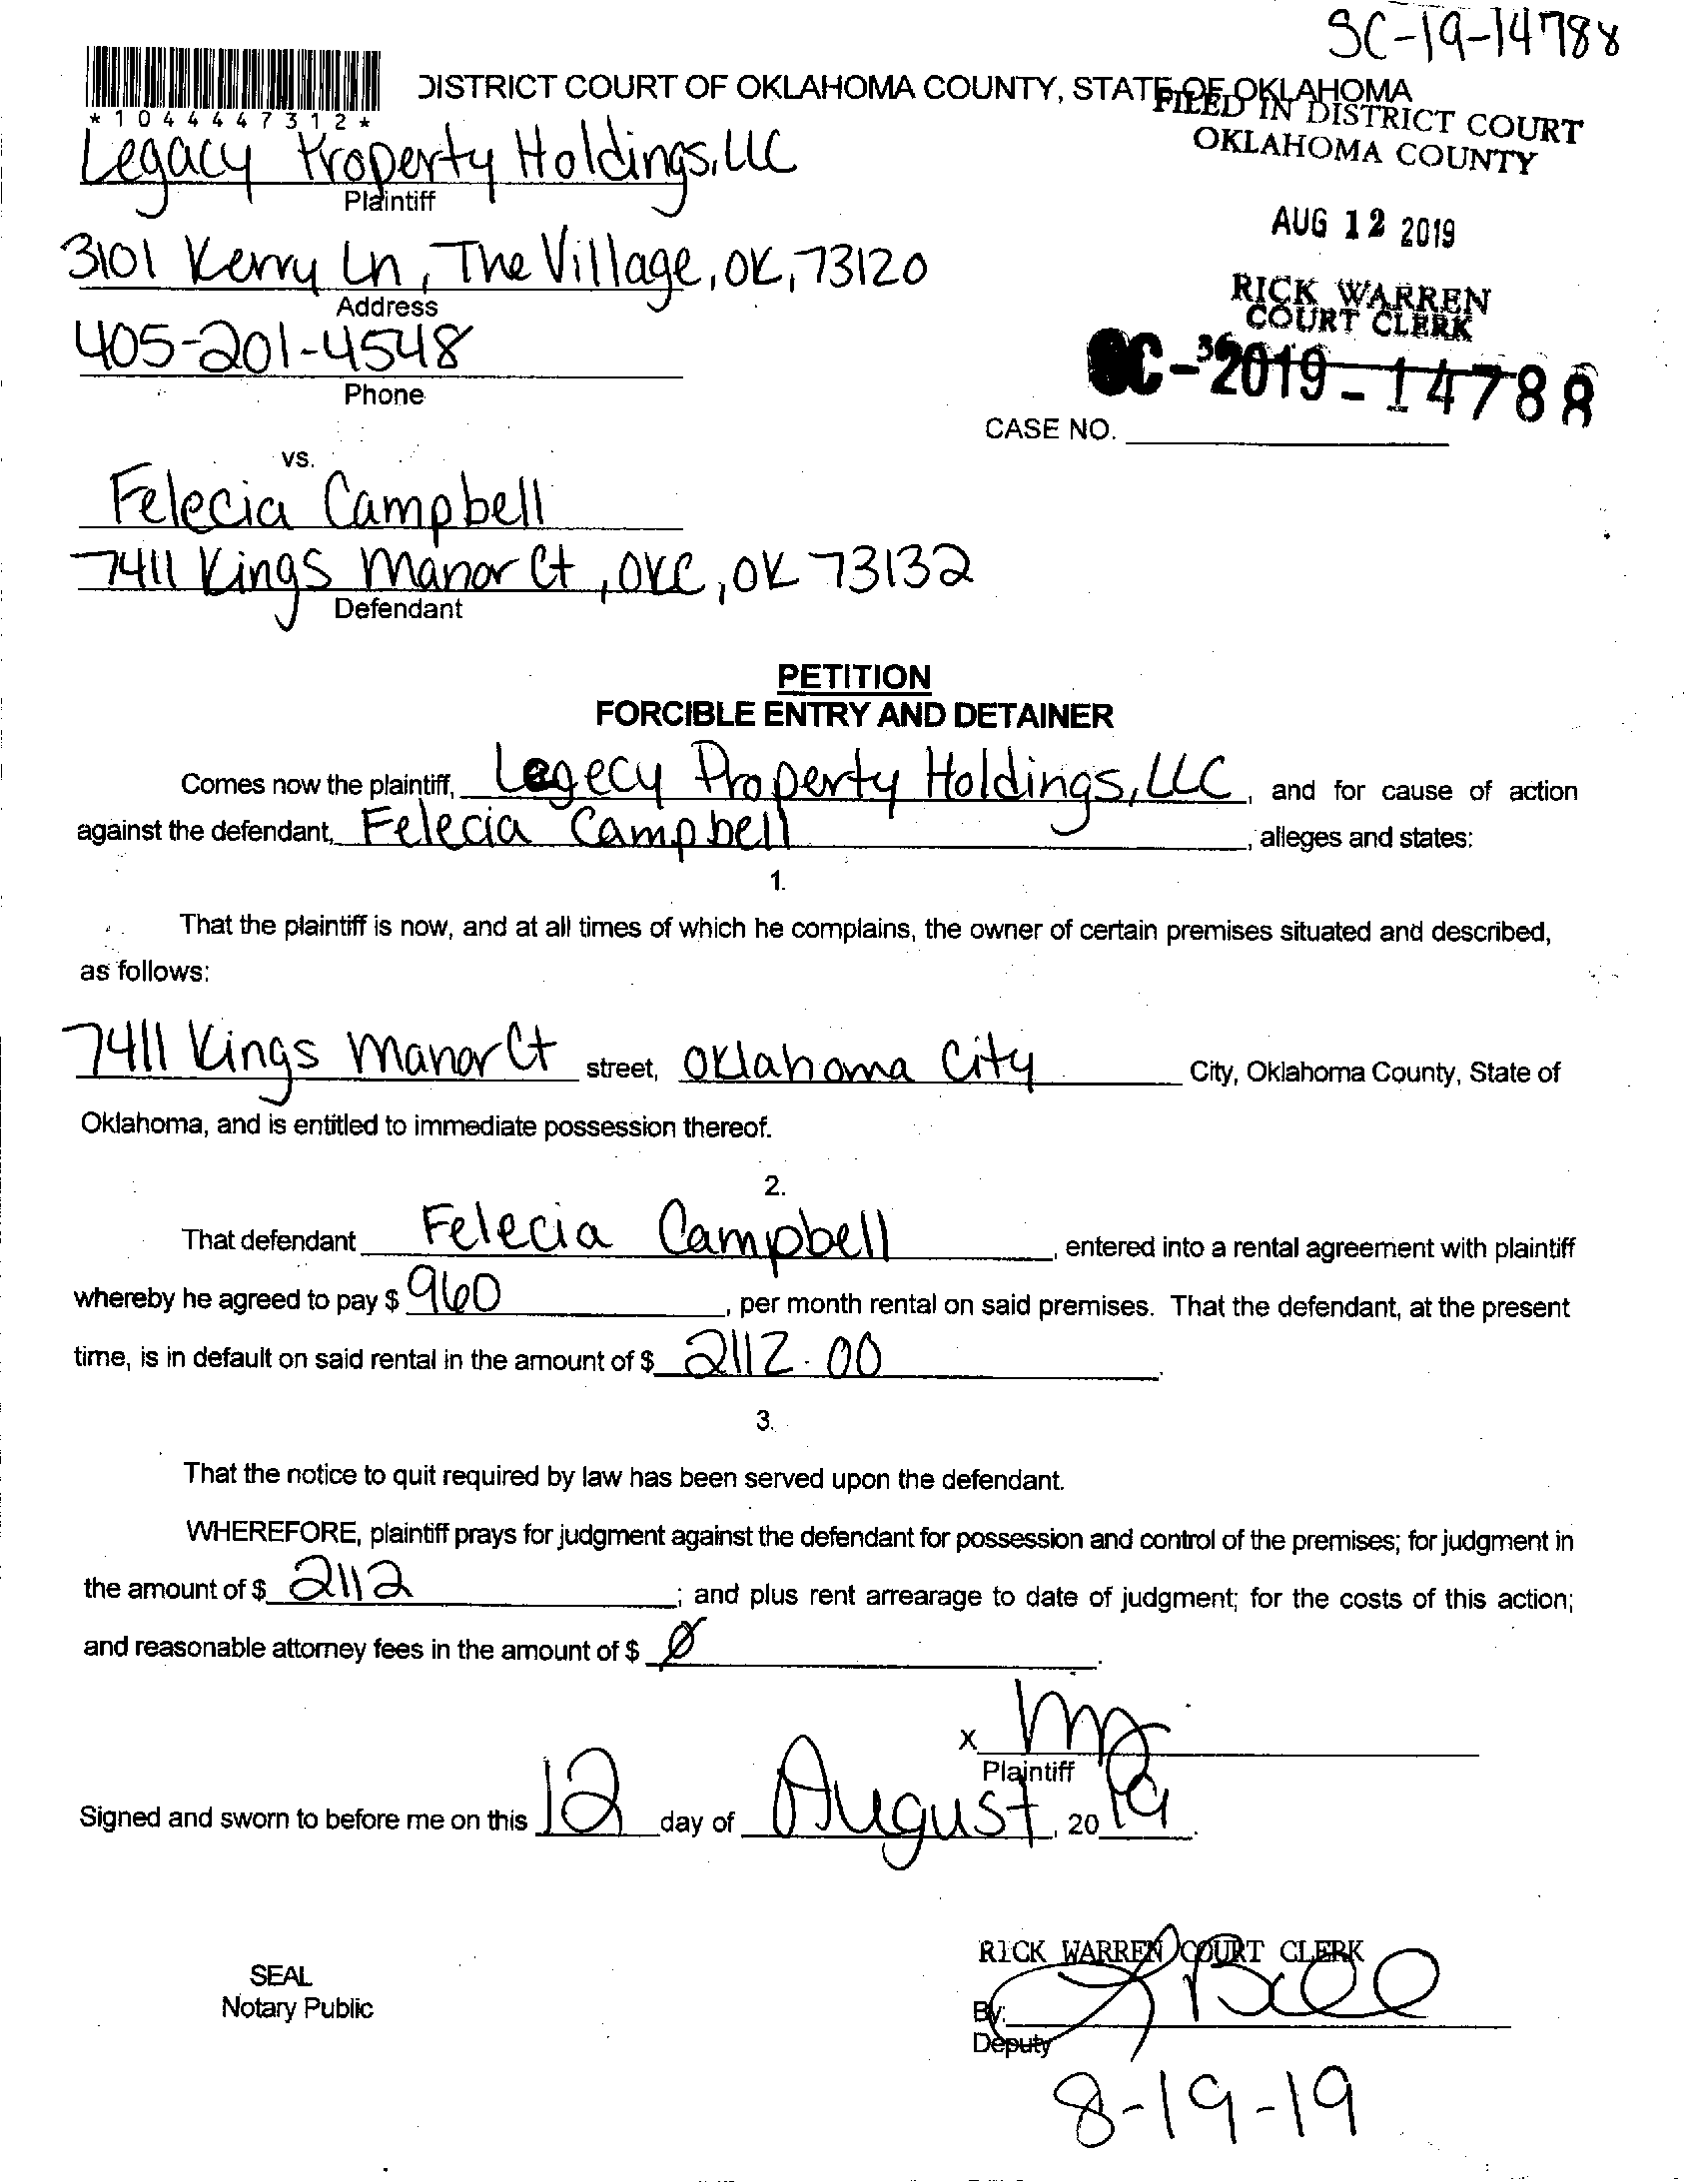 SC-19-14788
DISTRICT COURT OF OKLAHOMA COUNTY, STATE OF OKLAHOMA
FILED IN DISTRICT COURT
OKLAHOMA COUNTY
*1044447312*
Legacy Property Holdings, LLC
Plaintiff
AUG 12 2019
3101 Kerry Ln, The Village, OK, 73120
Address
RICK WARREN
COURT CLERK
405-201-4548
Phone
36
SC-2019-14788
CASE NO.
vs.
Felecia Campbell
7411 Kings Manor Ct, OKC, OK 73132
Defendant
PETITION
FORCIBLE ENTRY AND DETAINER
Comes now the plaintiff, Legecy Property Holdings, LLC, and for cause of action
against the defendant, Felecia Campbell, alleges and states:
1.
That the plaintiff is now, and at all times of which he complains, the owner of certain premises situated and described,
as follows:
7411 Kings Manor Ct street, Oklahoma City City, Oklahoma County, State of
Oklahoma, and is entitled to immediate possession thereof.
2.
That defendant Felecia Campbell, entered into a rental agreement with plaintiff
whereby he agreed to pay $ 960, per month rental on said premises. That the defendant, at the present
time, is in default on said rental in the amount of $ 2112.00.
3.
That the notice to quit required by law has been served upon the defendant.
WHEREFORE, plaintiff prays for judgment against the defendant for possession and control of the premises; for judgment in
the amount of $ 2112; and plus rent arrearage to date of judgment; for the costs of this action;
and reasonable attorney fees in the amount of $ Ø.
X
Plaintiff
Signed and sworn to before me on this 12 day of August, 2019.
RICK WARREN COURT CLERK
SEAL
Notary Public
By:
Deputy
8-19-19